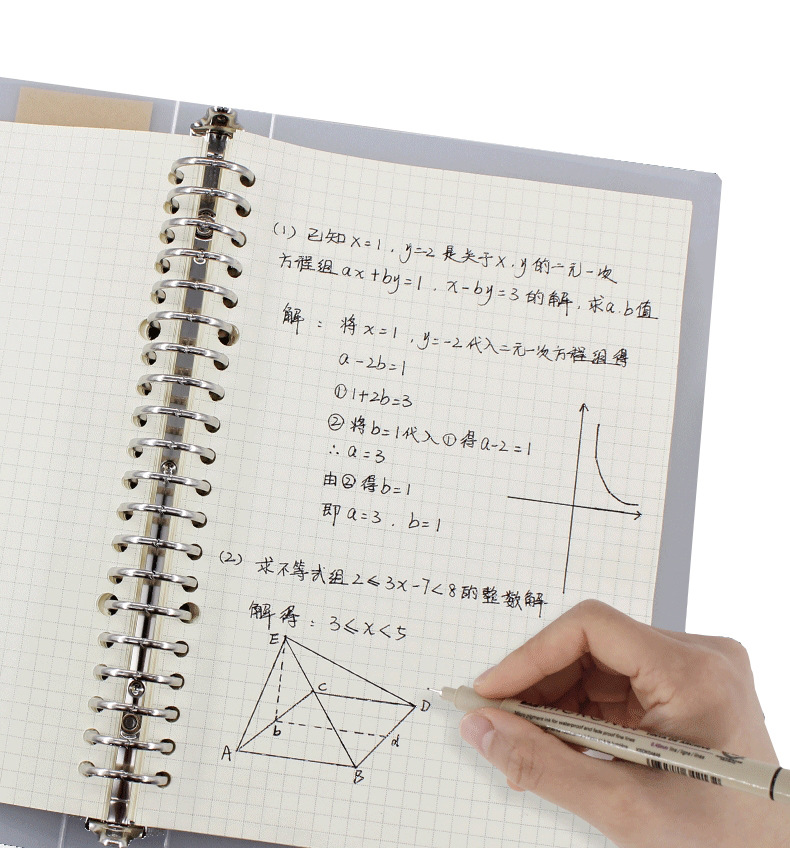 (1) 已知x=1，y=2是关于x.y的二元一次
方程组ax+by=1．x-by=3的解，求a.b值
解：将x=1，y=-2代入二元一次方程组得
a-2b=1
①1+2b=3
②将b=1代入①得a-2=1
∴a=3
由②得b=1
即a=3．b=1
(2) 求不等式组2≤3x-7<8的整数解
解得：3≤x<5
E
C
D
b
d
A
B